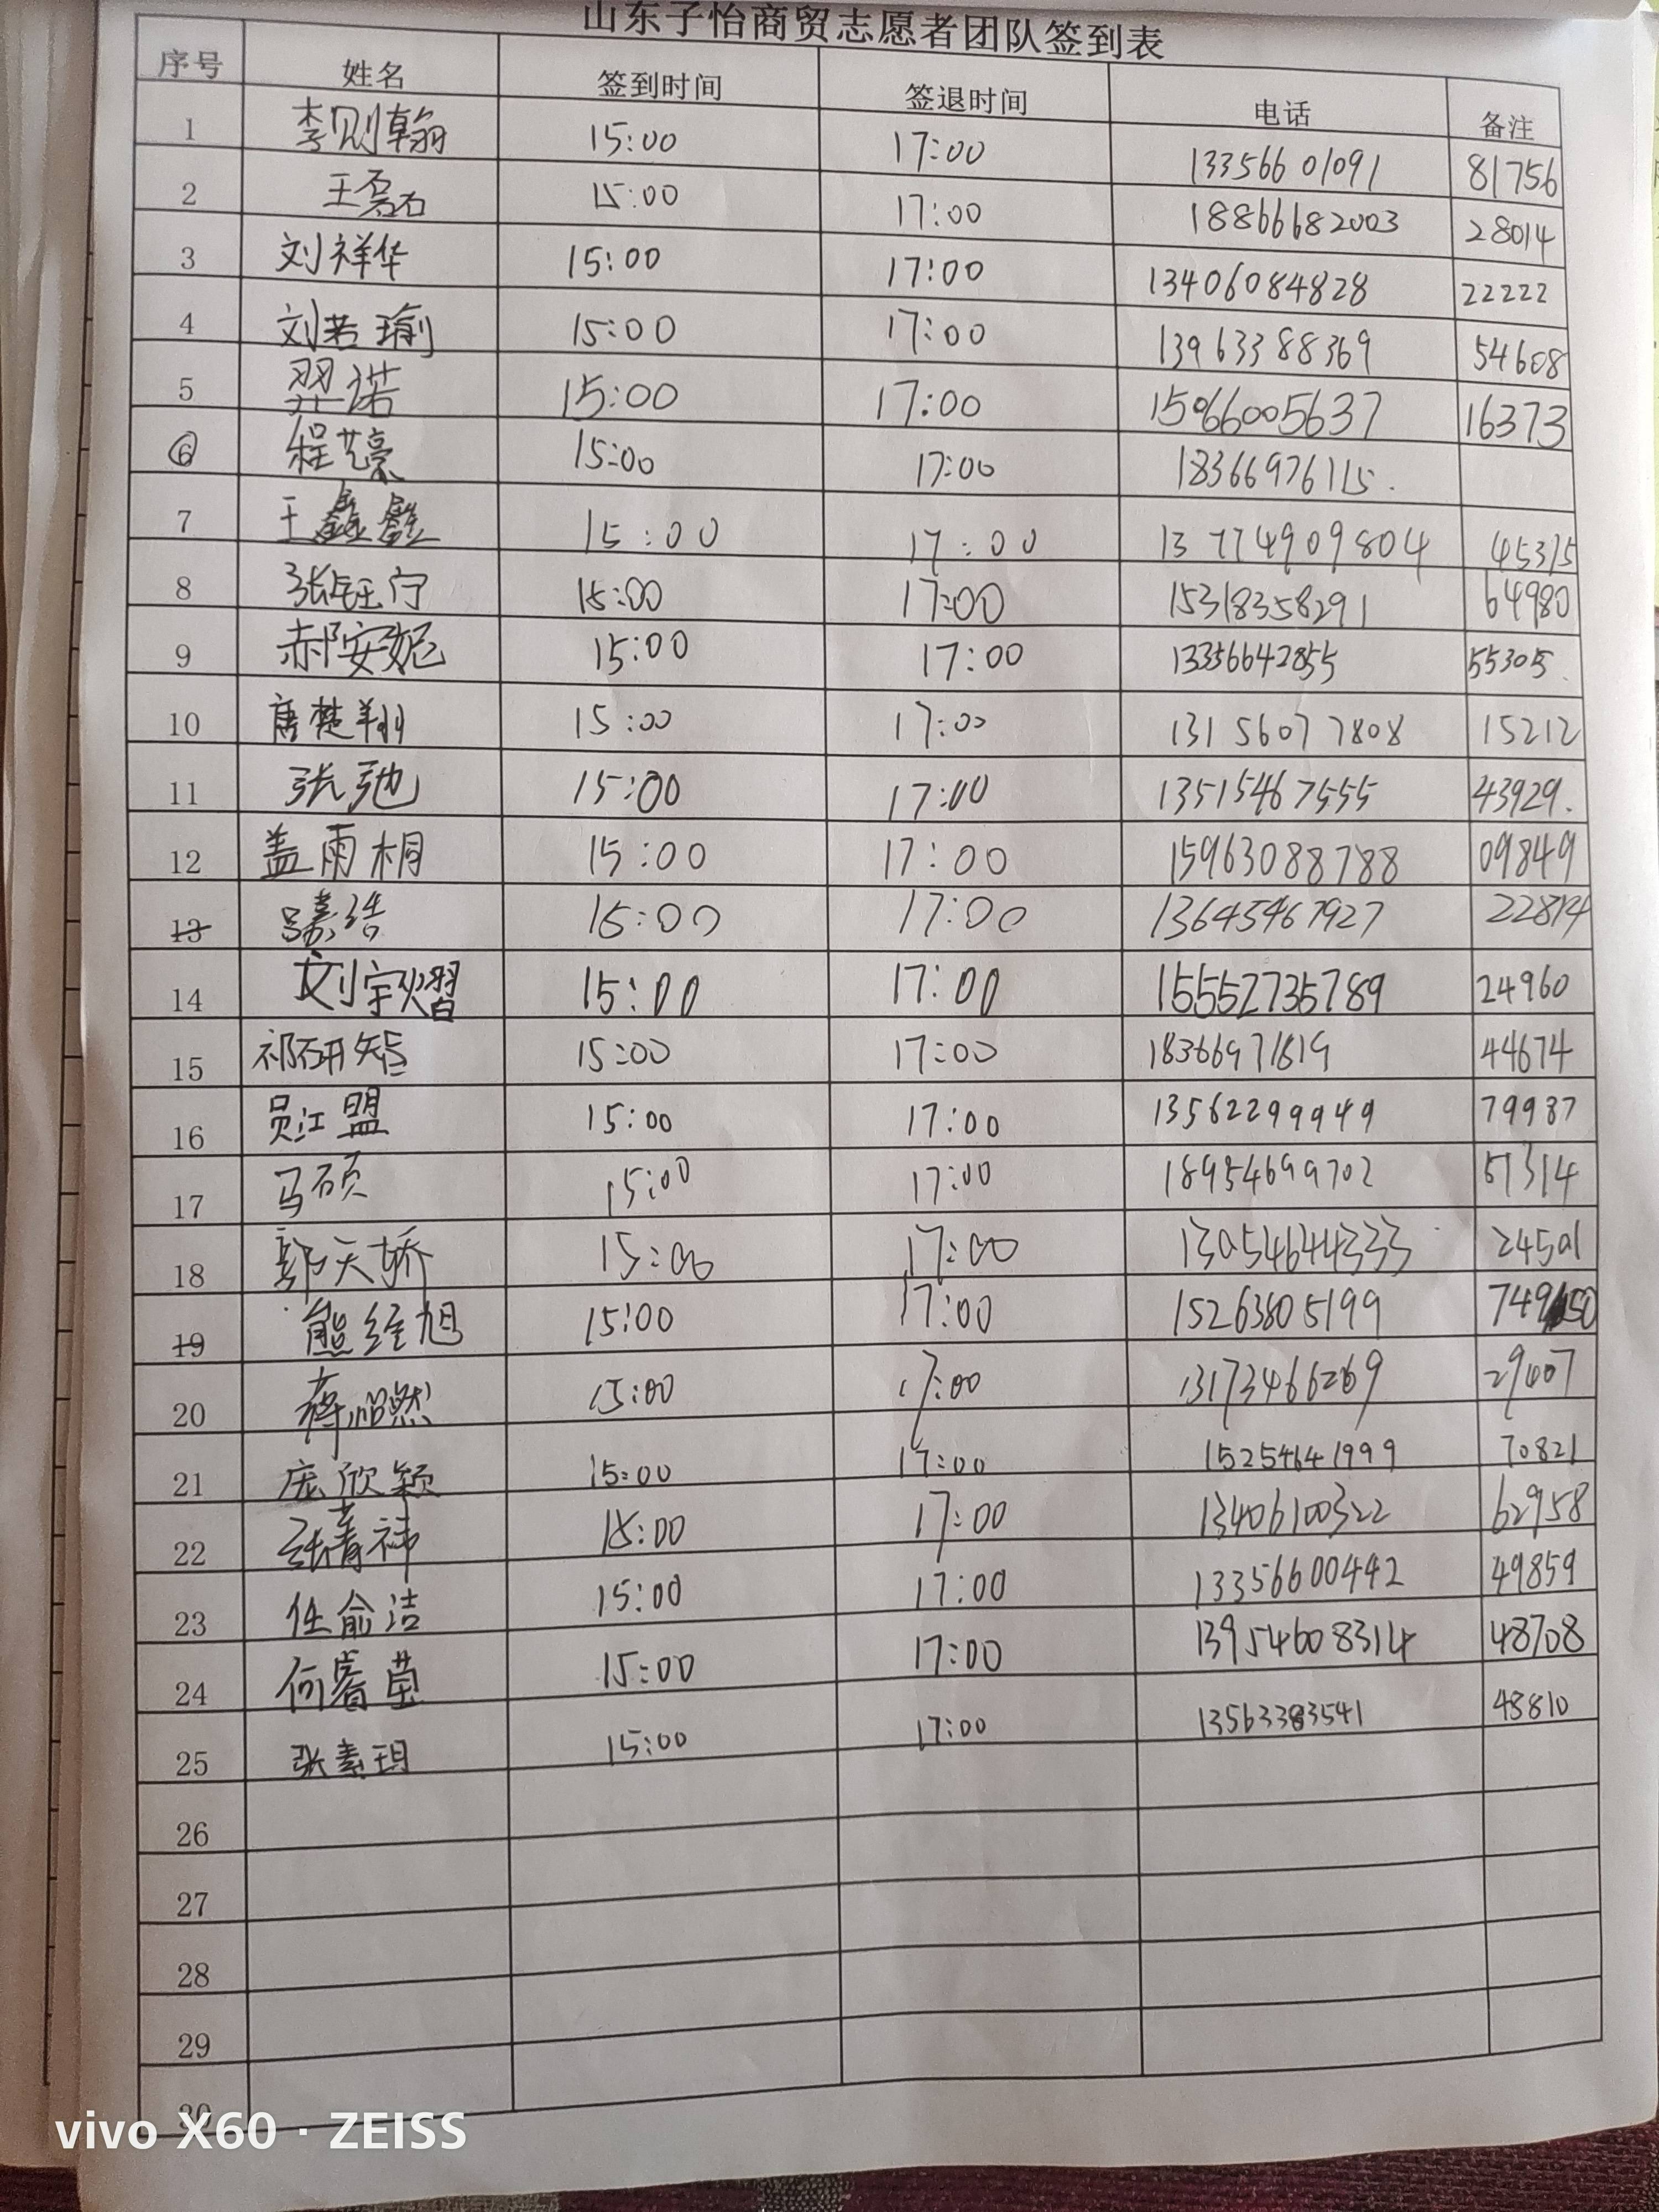 山东子怡商贸志愿者团队签到表
序号 姓名 签到时间 签退时间 电话 备注
1 李则翰 15:00 17:00 13356601091 81756
2 王磊石 15:00 17:00 18866682003 28014
3 刘祥华 15:00 17:00 13406084828 22222
4 刘若瑜 15:00 17:00 13963388369 54608
5 羿诺 15:00 17:00 15066005637 16373
6 程艺豪 15:00 17:00 18366976115.
7 王鑫鑫 15:00 17:00 13774909804 45315
8 张钰宁 15:00 17:00 15318358291 64980
9 郝安妮 15:00 17:00 13356642855 55305.
10 唐楚翔 15:00 17:00 13156077808 15212
11 张弛 15:00 17:00 13515467555 43929.
12 盖雨桐 15:00 17:00 15963088788 09849
13 吕嘉浩 15:00 17:00 13645467927 22814
14 刘宇熠 15:00 17:00 15552735789 24960
15 祁研矩 15:00 17:00 18366971819 44674
16 员江盟 15:00 17:00 13562299949 79987
17 马硕 15:00 17:00 18954699702 51314
18 郭天娇 15:00 17:00 13054644333 24501
19 熊经旭 15:00 17:00 15263805199
20 蒋灿然 15:00 17:00 13173466269 29407
21 庞欣颖 15:00 17:00 15254641999 70821
22 张青祎 15:00 17:00 13406100322 62958
23 任俞洁 15:00 17:00 13356600442 49859
24 何睿莹 15:00 17:00 13954608314 48708
25 张素玥 15:00 17:00 13563383541 48810
26
27
28
29
30
vivo X60 · ZEISS